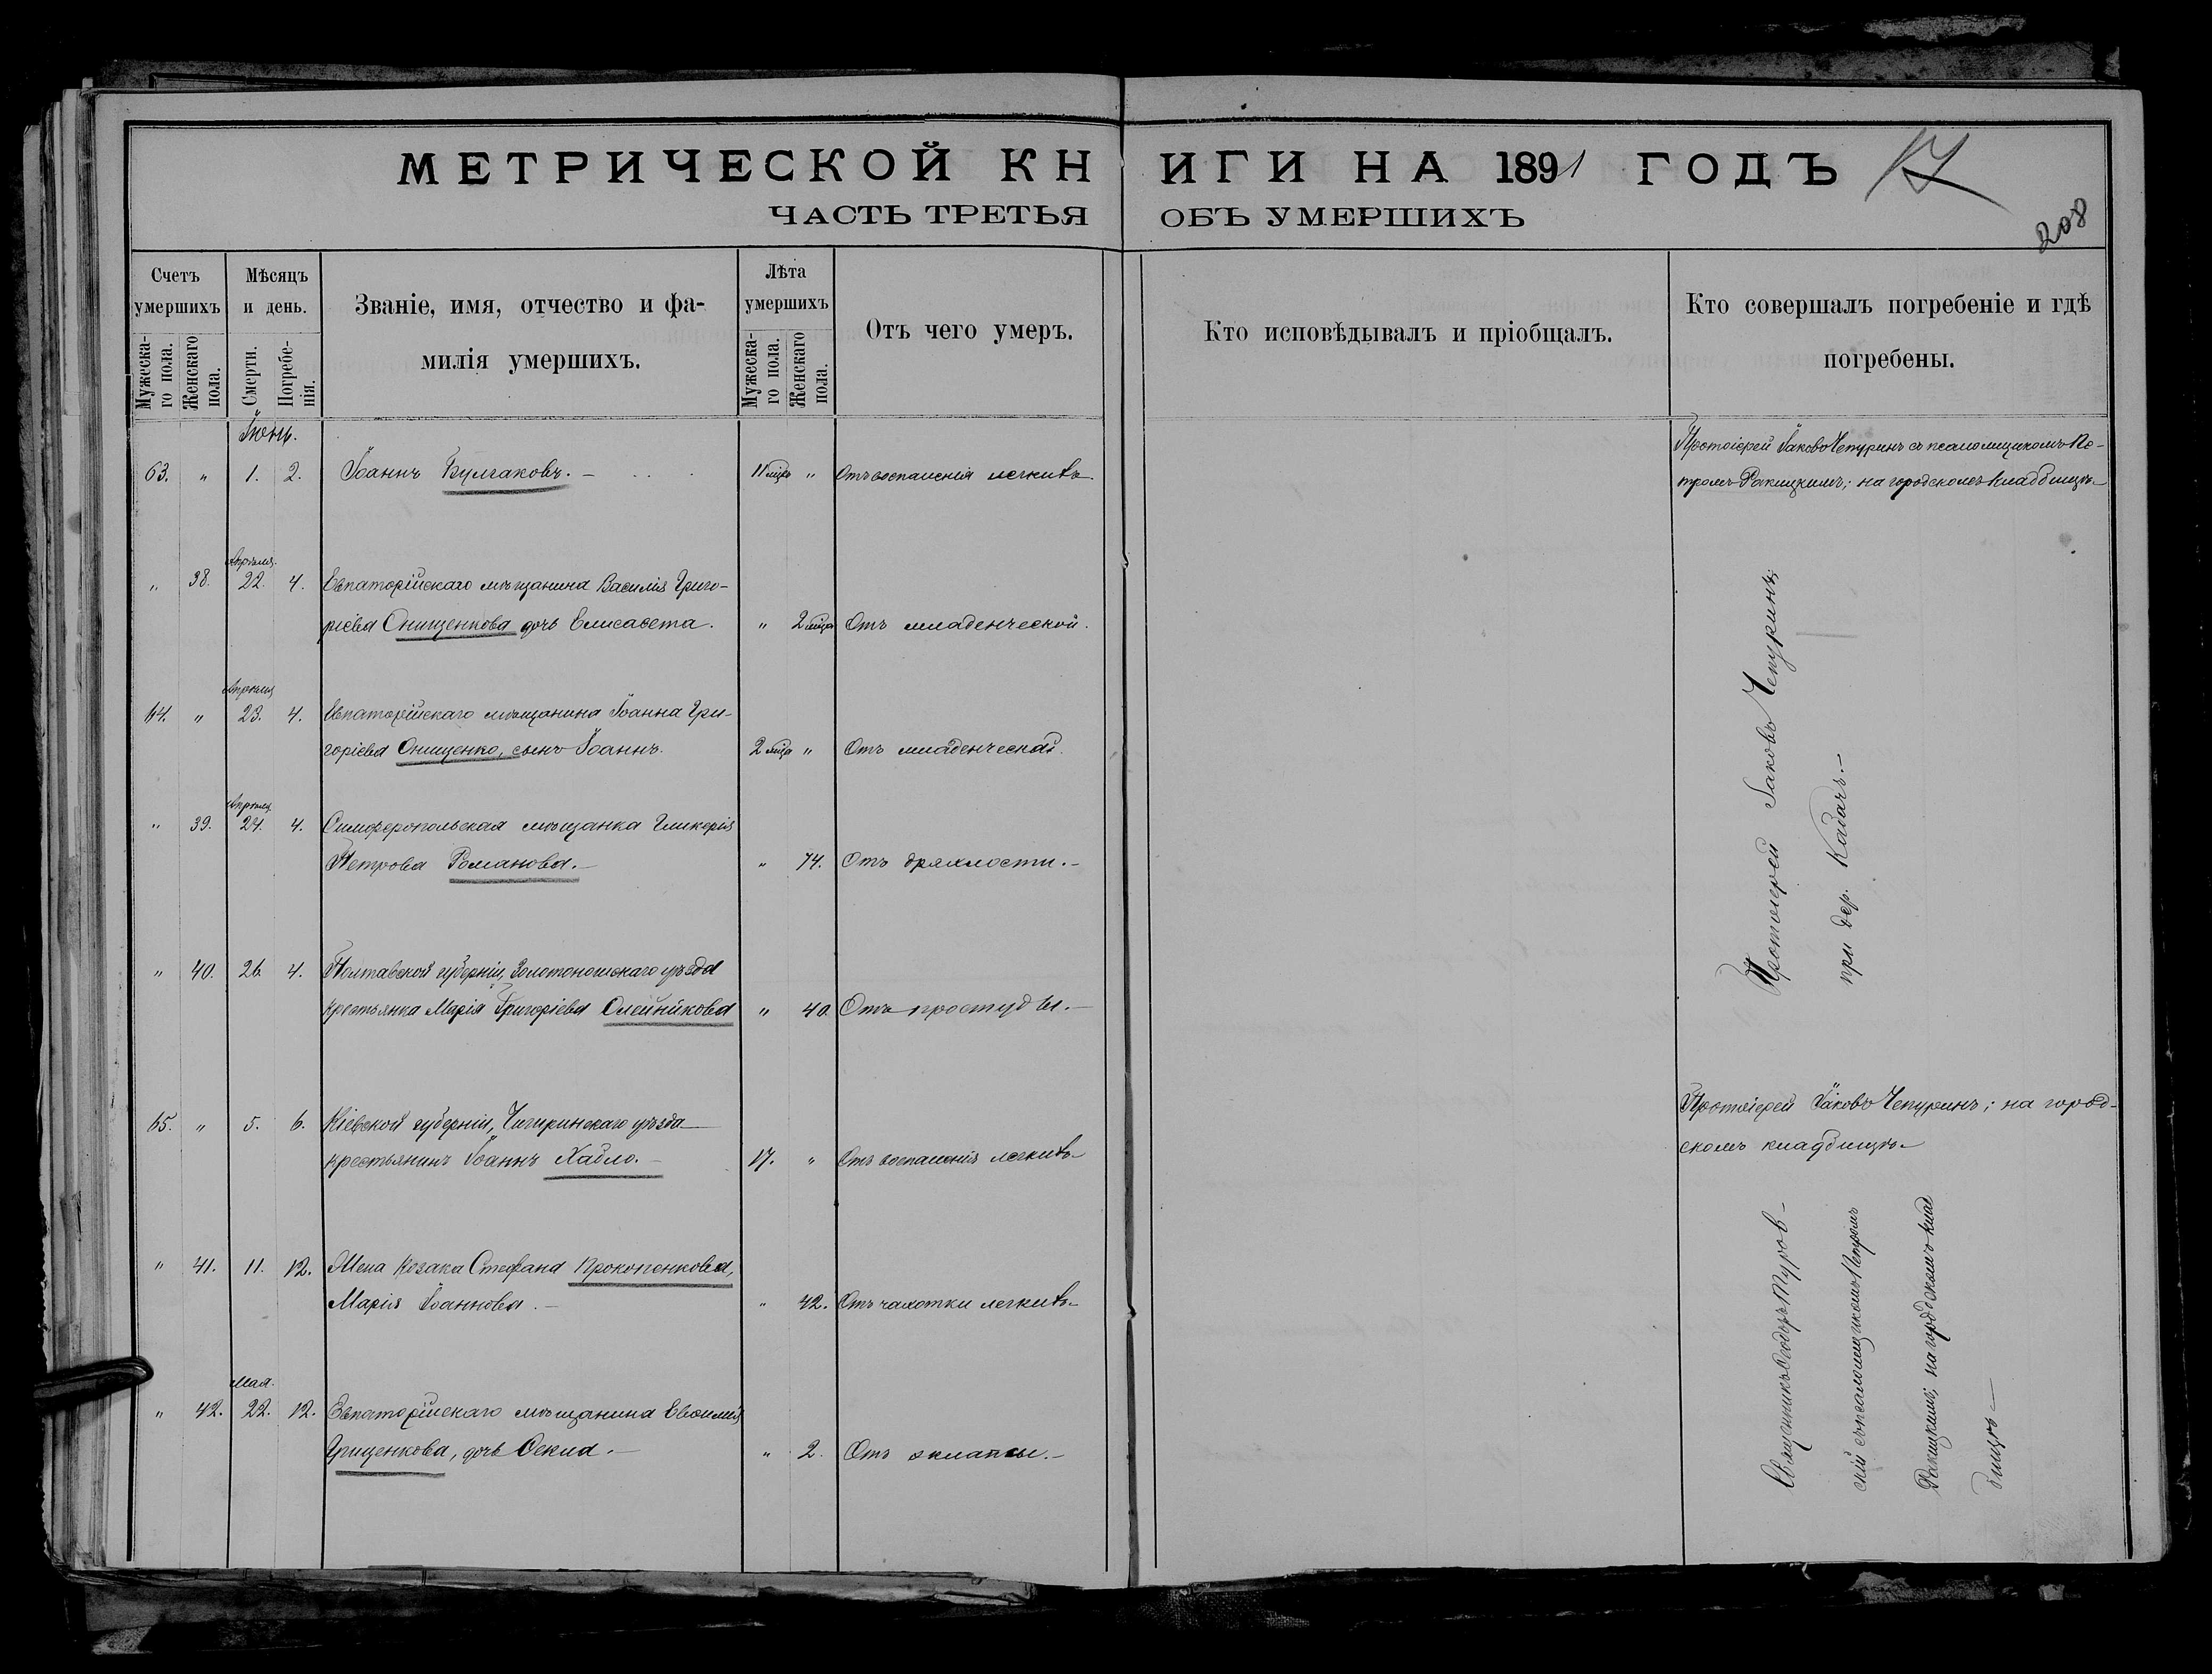 МЕТРИЧЕСКОЙ КНИГИ НА 1891 ГОДЪ
17
ЧАСТЬ ТРЕТЬЯ ОБЪ УМЕРШИХЪ
208
Счетъ умершихъ
Мужеска-го пола.
Женскаго пола.
Мѣсяцъ и день.
Смерти.
Погребе-нія.
Званіе, имя, отчество и фа-
милія умершихъ.
Лѣта умершихъ
Мужеска-го пола.
Женскаго пола.
Отъ чего умеръ.
Кто исповѣдывалъ и пріобщалъ.
Кто совершалъ погребеніе и гдѣ
погребены.
Іюнь.
63. " 1. 2. Іоаннъ Булгаковъ.– 11 мцвъ " Отъ воспаленія легкихъ
Протоіерей Іаковъ Чепуринъ съ псаломщикомъ Пе-
тромъ Ракицкимъ; на городскомъ кладбищѣ.–
Апрѣля.
" 38. 22. 4. Евпаторійскаго мѣщанина Василія Григо-
рієва Онищенкова дочь Елисавета. " 2 мца Отъ младенческой.
Апрѣля
64. " 23. 4. Евпаторійскаго мѣщанина Іоанна Гри-
горіева Онищенко, сынъ Іоаннъ. 2 мца " Отъ младенческой.
Апрѣля
" 39. 24. 4. Симферопольская мѣщанка Гликерія
Петрова Романова.– " 74. Отъ дряхлости.–
" 40. 26. 4. Полтавской губерніи, Золотоношскаго уѣзда
крестьянка Марія Григоріева Олейникова " 40. Отъ простуды.–
Протоіерей Іаковъ Чепуринъ;
при дер. Кадачъ.–
65. " 5. 6. Кіевской губерніи, Чигиринскаго уѣзда
крестьянинъ Іоаннъ Хабло.– 17. " Отъ воспаленія легкихъ
Протоіерей Іаковъ Чепуринъ; на город-
скомъ кладбищѣ.–
" 41. 11. 12. Жена козака Стефана Прокопенкова,
Марія Іоаннова.– " 42. Отъ чахотки легкихъ
Мая.
" 42. 22. 12. Евпаторійскаго мѣщанина Евѳимія
Гриценкова, дочь Ѳекла.– " 2. Отъ эклапсы.–
Священникъ Ѳеодоръ Туров-
скій съ псаломщикомъ Петромъ
Ракицкимъ; на городскомъ клад
бищѣ–